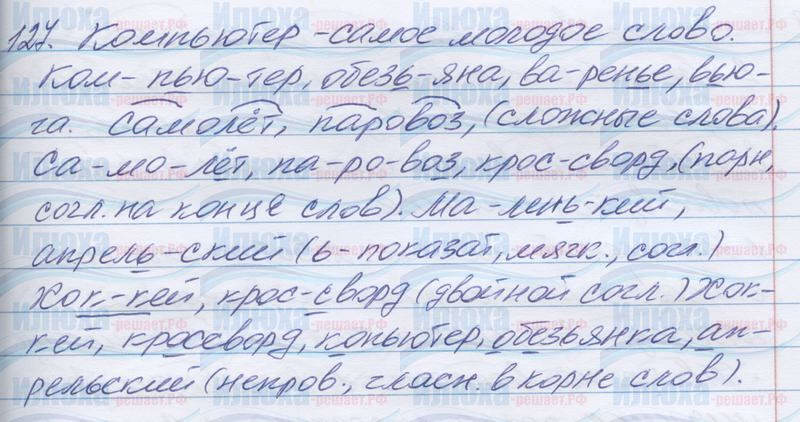 127. Компьютер - самое молодое слово.
Ком-пью-тер, обезь-яна, ва-ренье, вью-
га. Самолёт, паровоз, (сложные слова).
Са-мо-лёт, па-ро-воз, крос-сворд, (парн,
согл. на конце слов). Ма-лень-кий,
апрель-ский (ь-показат, мягк., согл.)
Хок-кей, крос-сворд (двойной согл.) Хок-
кей, кроссворд, копьютер, обезьянка, ап-
рельский (непров., гласн. в корне слов).
Илюха
-решает.РФ